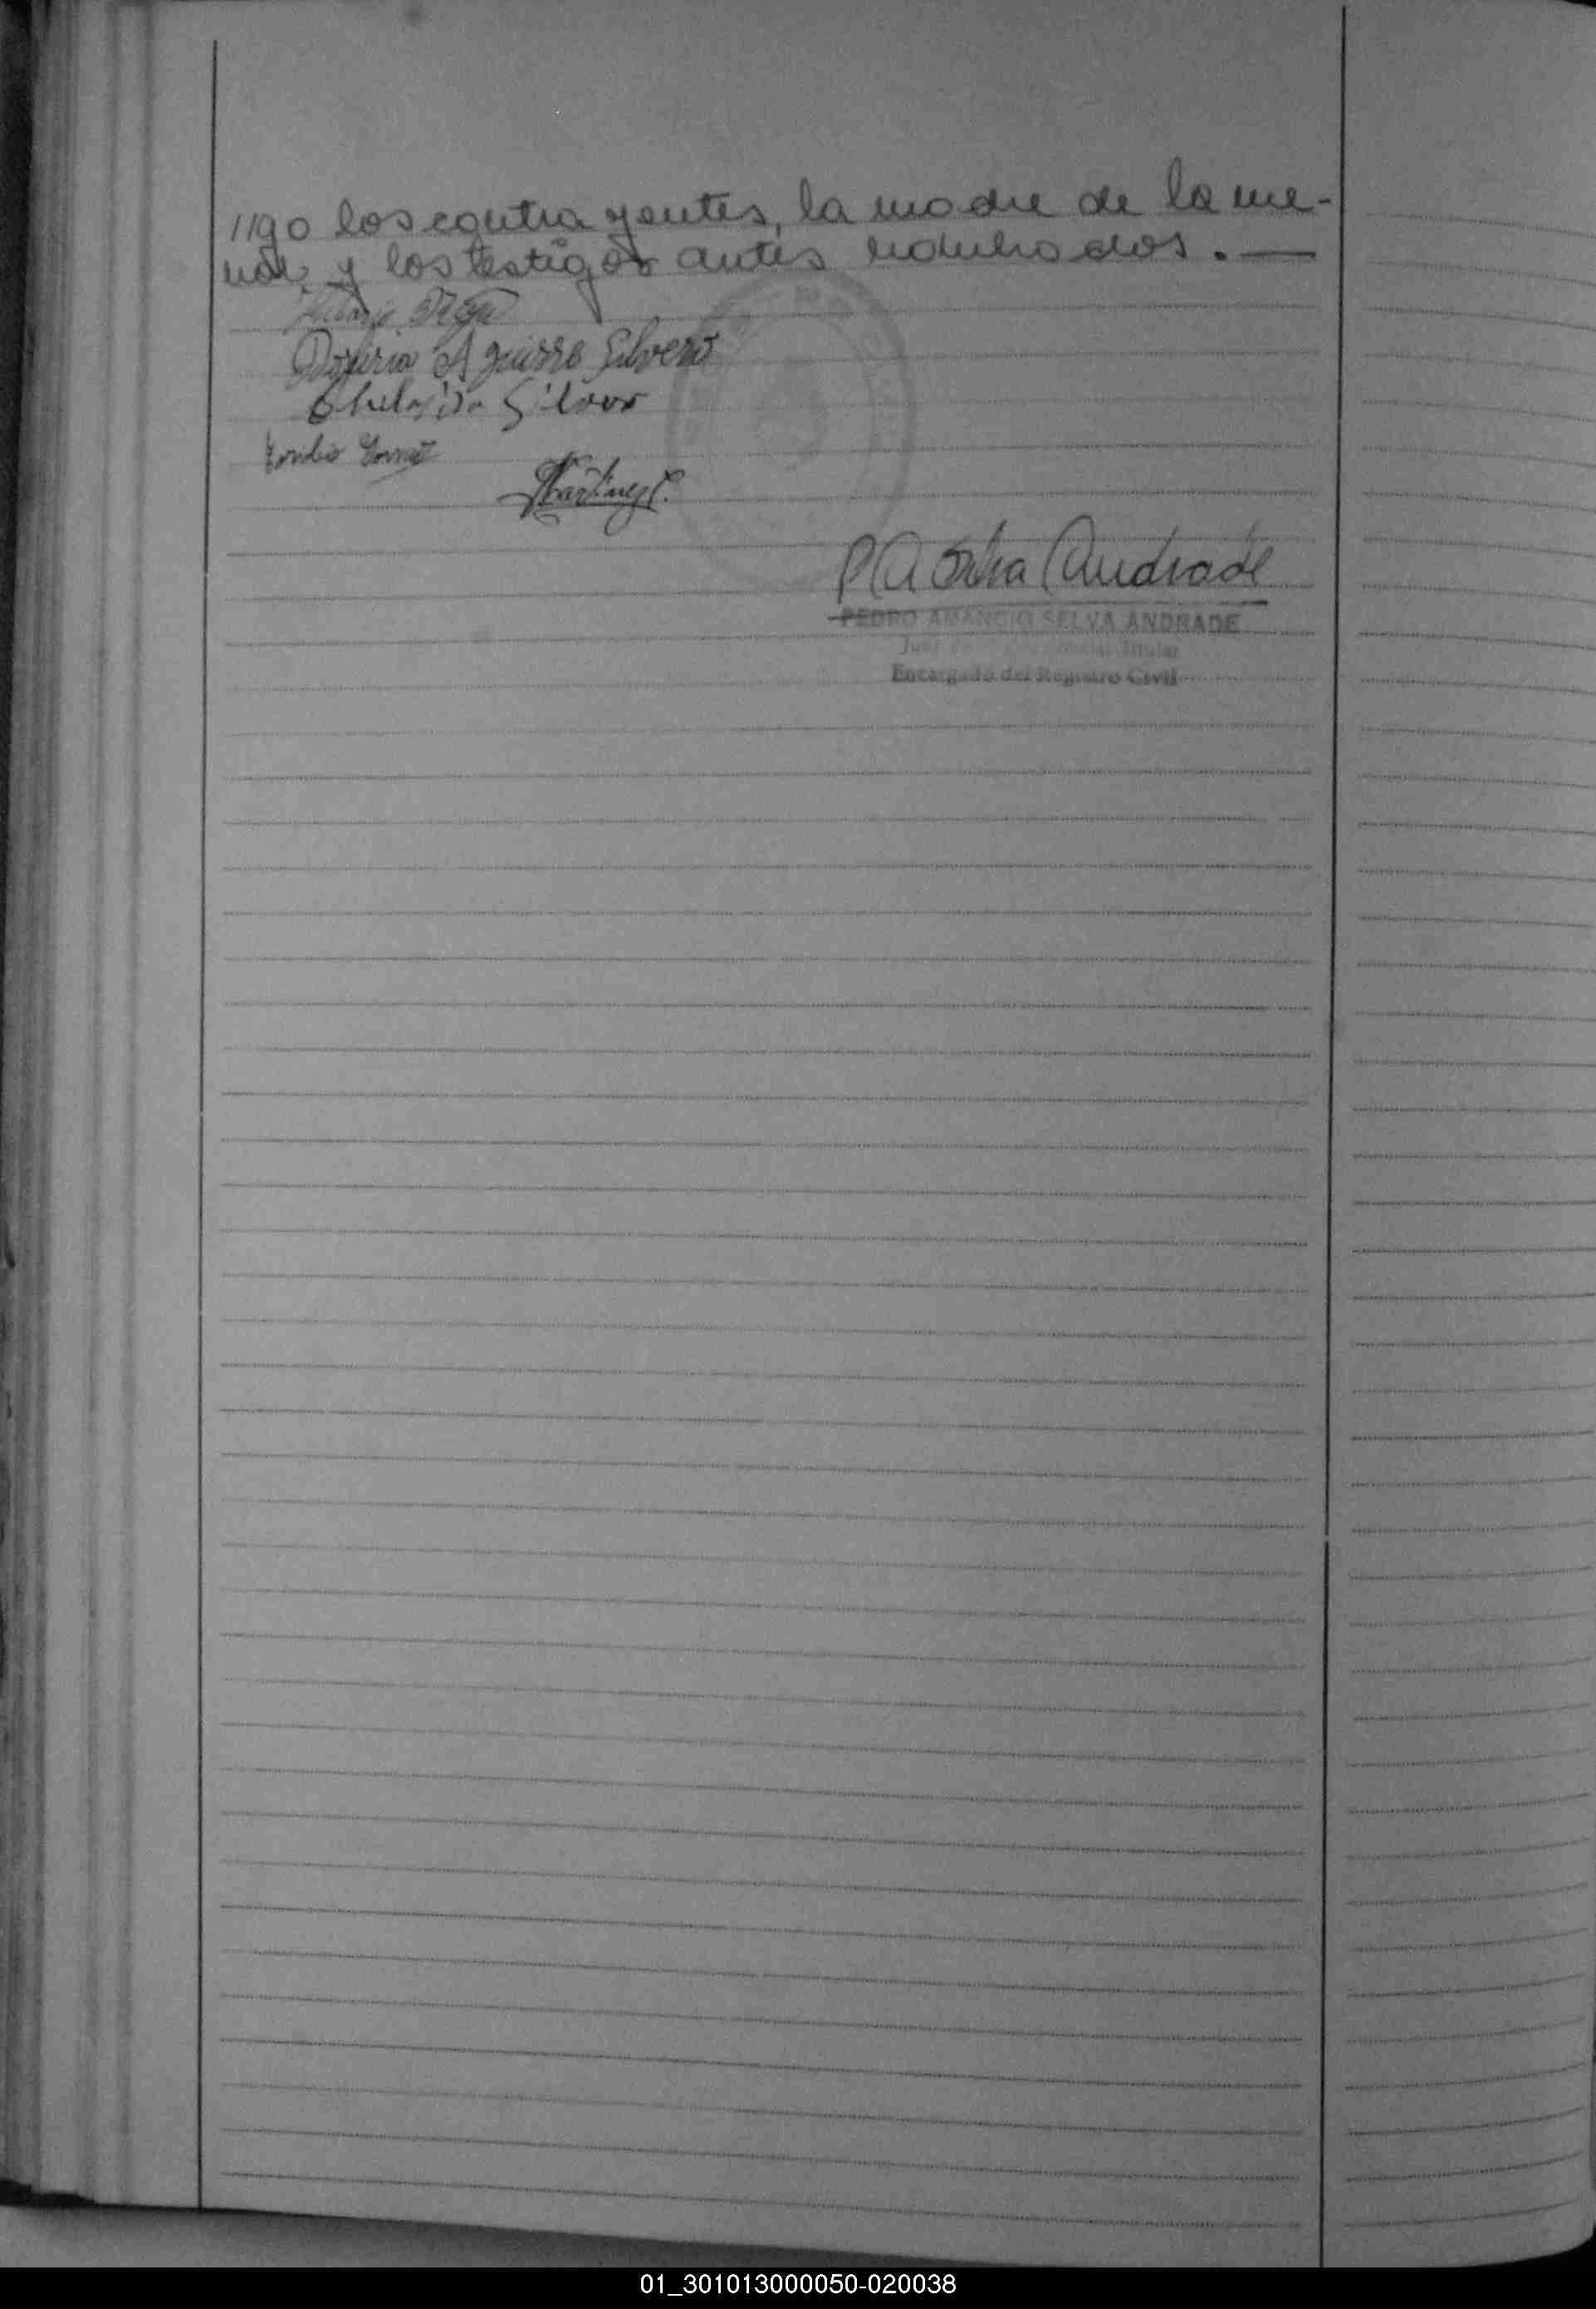 11go los contra yentes, la madre de la me-
nor, y los testigos antes nombrados. —
Aguirre Silvero
Silver
Martinez
P A Selva Andrade
PEDRO AMANCIO SELVA ANDRADE
Juez Titular
Encargado del Registro Civil
01_301013000050-020038